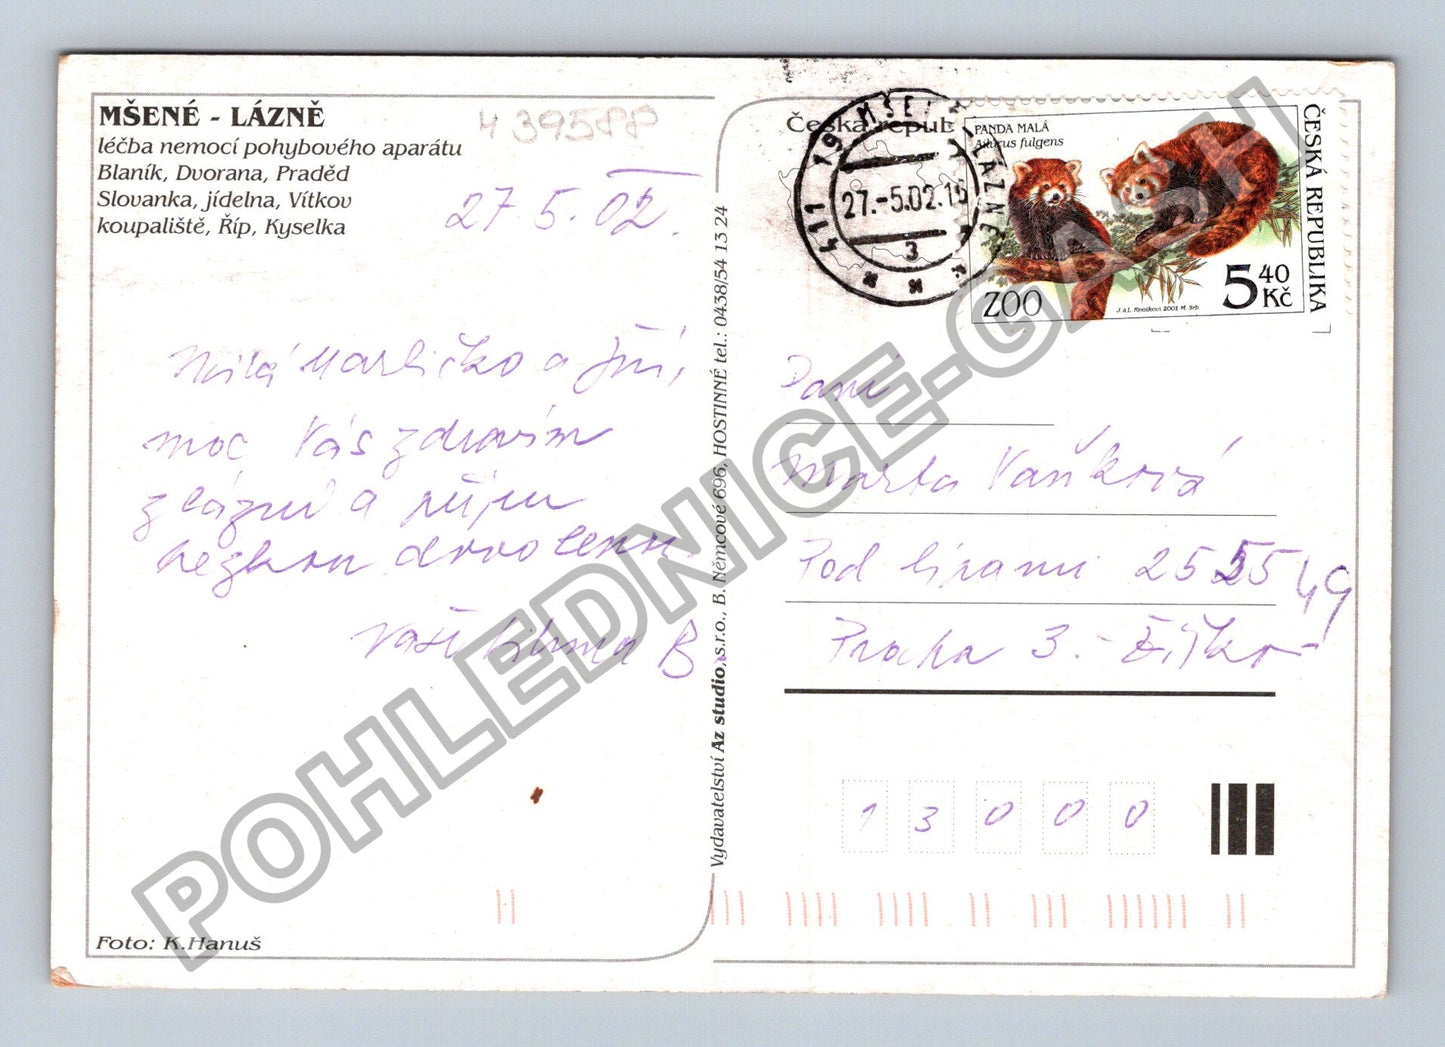 MŠENÉ - LÁZNĚ
léčba nemocí pohybového aparátu
Blaník, Dvorana, Praděd
Slovanka, jídelna, Vítkov
koupaliště, Říp, Kyselka
439588
27.5.02.
Milá Marličko a Jiří,
moc Vás zdravím
z lázní a přeju
hezkou dovolenou.
Vaše B.
Foto: K.Hanuš
Vydavatelství Az studio, s.r.o., B. Němcové 696, HOSTINNÉ tel.: 0438/54 13 24
Česká republ
411 19 MŠENÉ LÁZNĚ
27.-5.02.15
3
PANDA MALÁ
Ailurus fulgens
ČESKÁ REPUBLIKA
ZOO
5 40 Kč
J. a L. Knotkovi 2001 M. Srb
Paní
Marta Vaňková
Pod lipami 2555 49
Praha 3. - Žižkov
13000
POHLEDNICE-GASH